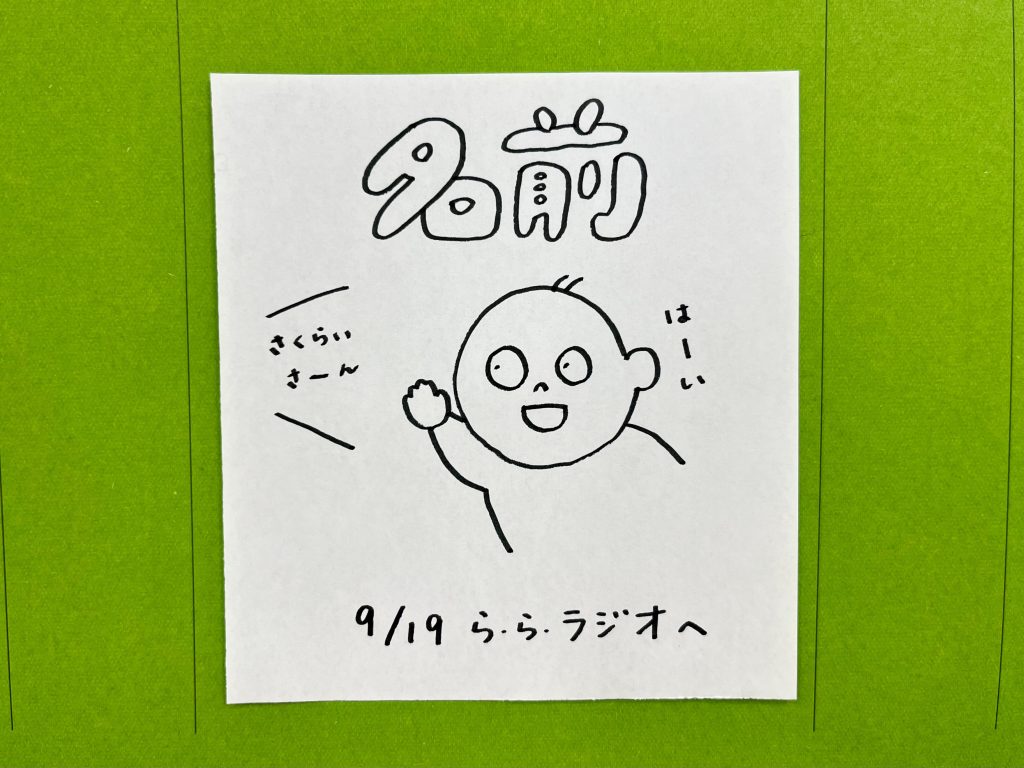 名前
さくらい
さーん
はーい
9/19 ら.ら.ラジオへ